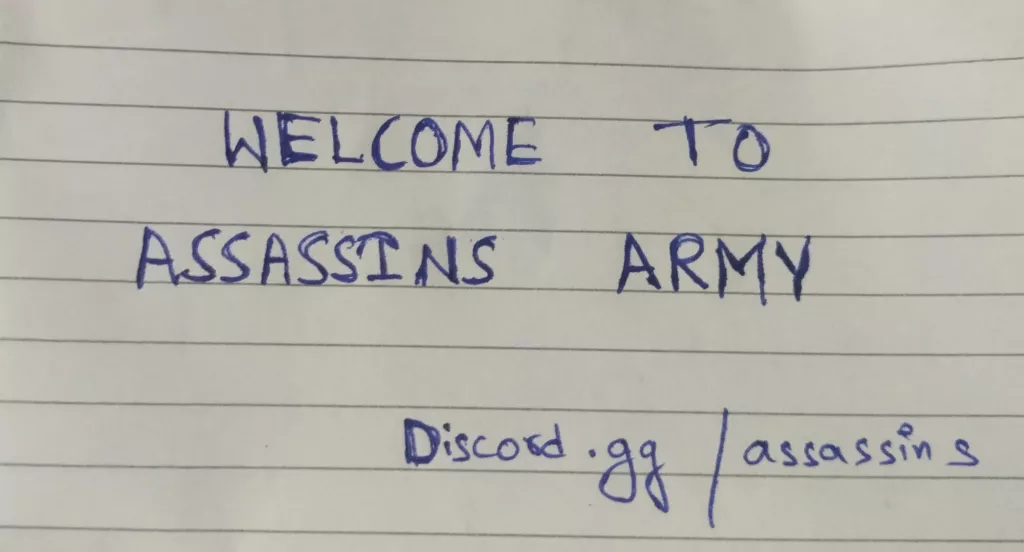 WELCOME TO
ASSASSINS ARMY
Discord.gg/assassins